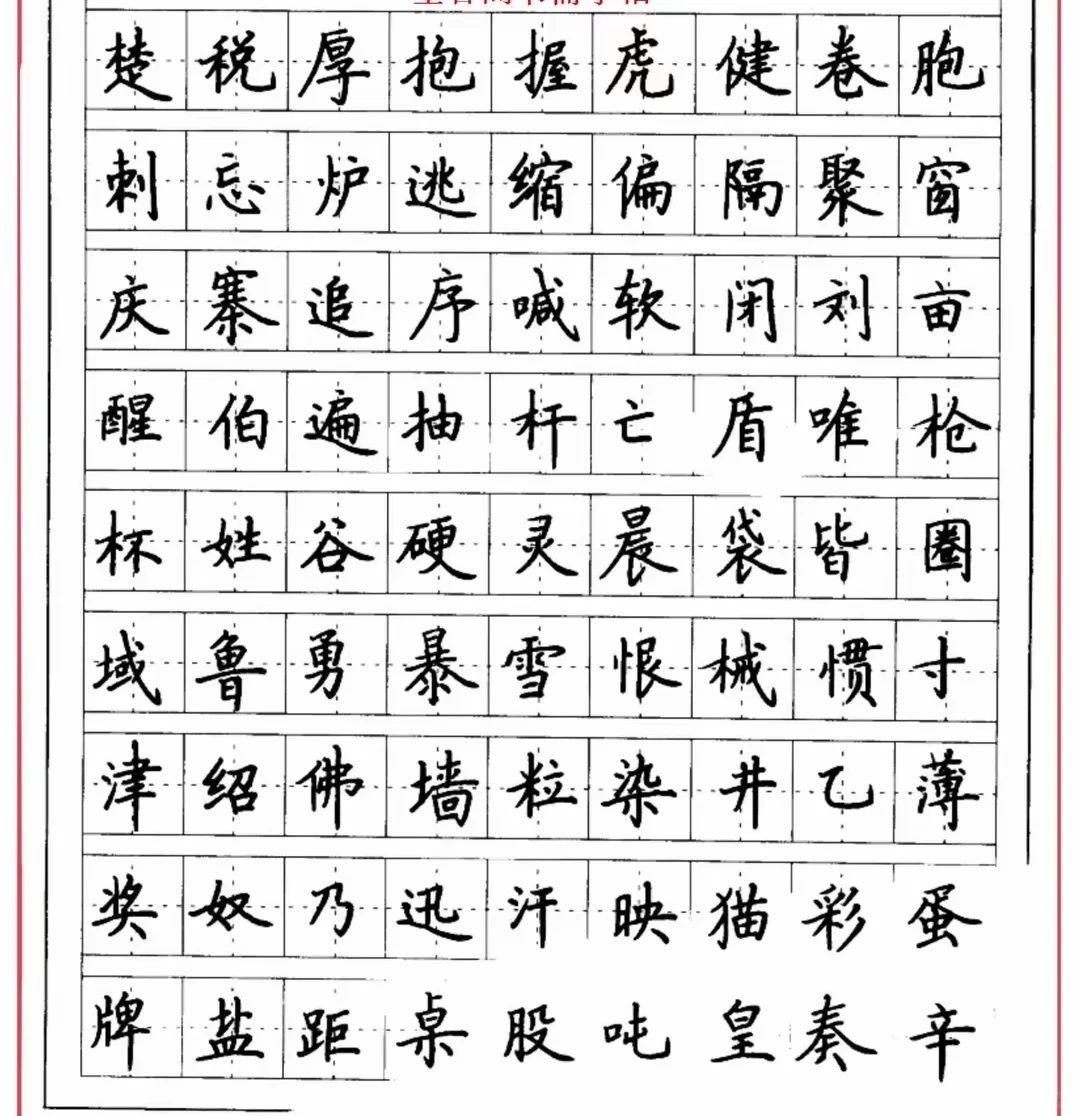 楚税厚抱握虎健卷胞
刺忘炉逃缩偏隔聚窗
庆寨追序喊软闭刘亩
醒伯遍抽杆亡盾唯枪
杯姓谷硬灵晨袋皆圈
域鲁勇暴雪恨械惯寸
津绍佛墙粒染井乙薄
奖奴乃迅汗映猫彩蛋
牌盐距桌股吨皇奏辛